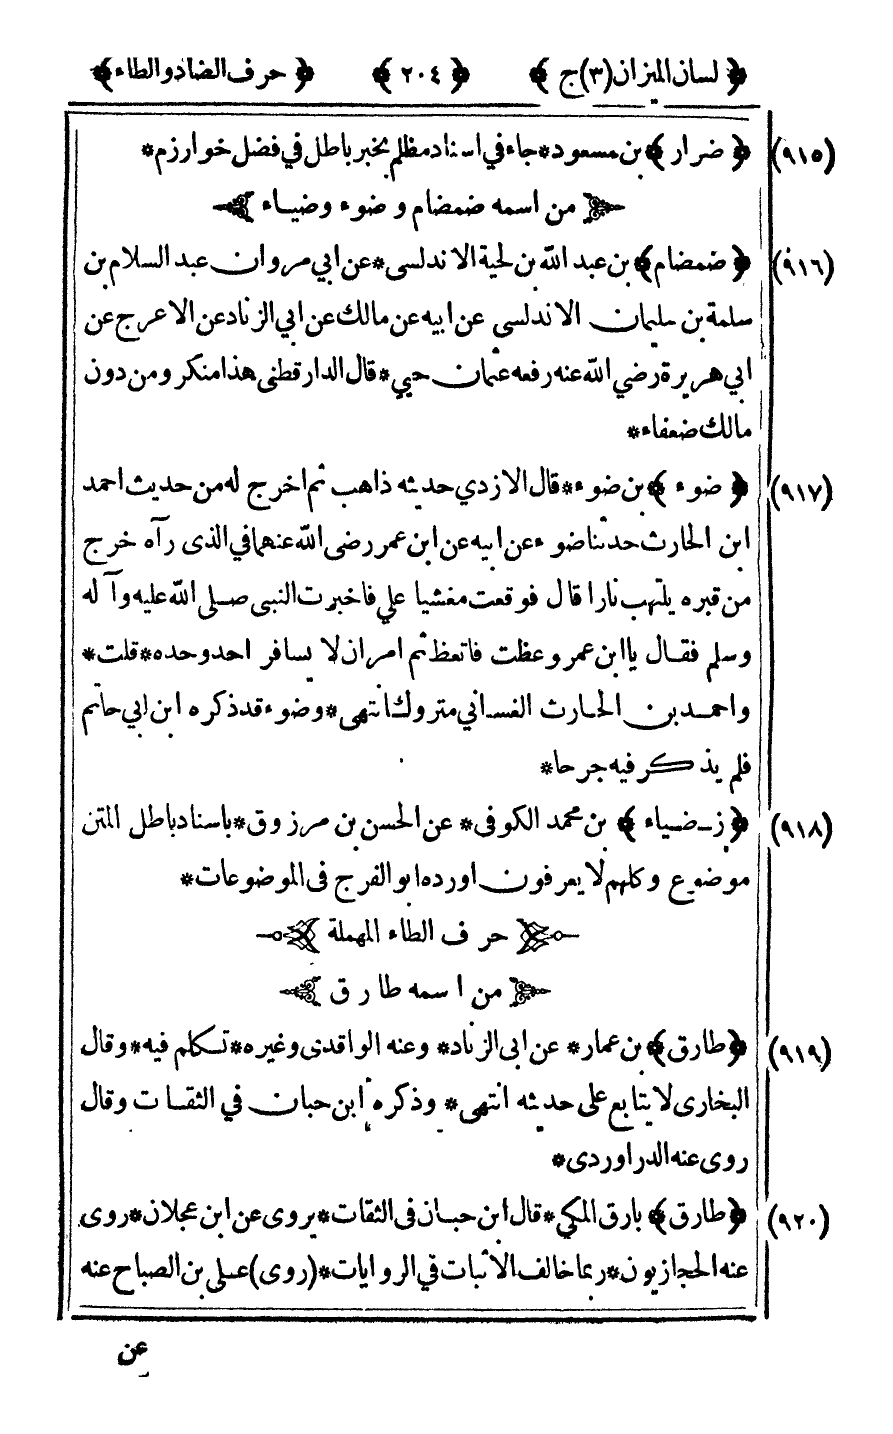 ﴿ لسان الميزان (٣) ج ﴾ ﴿ ٢٠٤ ﴾ ﴿ حرف الضاد والطاء ﴾
(٩١٥) ﴿ ضرار ﴾ بن مسعود * جاء في اسناد مظلم بخبر باطل في فضل خوارزم *
من اسمه ضمضام و ضوء وضياء
(٩١٦) ﴿ ضمضام ﴾ بن عبد الله بن لحية الاندلسى * عن ابي مروان عبد السلام بن
سلمة بن سليمان الاندلسى عن ابيه عن مالك عن ابي الزناد عن الاعرج عن
ابي هريرة رضي الله عنه رفعه عثمان حيي * قال الدارقطنى هذا منكر ومن دون
مالك ضعفاء *
(٩١٧) ﴿ ضوء ﴾ بن ضوء * قال الازدي حديثه ذاهب ثم اخرج له من حديث احمد
ابن الحارث حدثنا ضوء عن ابيه عن ابن عمر رضى الله عنهما في الذى رآه خرج
من قبره يلتهب نارا قال فوقعت مغشيا علي فاخبرت النبى صلى الله عليه وآله
وسلم فقال يا ابن عمر وعظت فاتعظ ثم امر ان لا يسافر احد وحده * قلت *
واحمد بن الحارث الغسانى متروك انتهى * وضوء قد ذكره ابن ابي حاتم
فلم يذكر فيه جرحا *
(٩١٨) ﴿ ز - ضياء ﴾ بن محمد الكوفى * عن الحسن بن مرزوق * باسناد باطل المتن
موضوع وكلهم لا يعرفون اورده ابو الفرج فى الموضوعات *
حرف الطاء المهملة
من اسمه طارق
(٩١٩) ﴿ طارق ﴾ بن عمار * عن ابى الزناد * وعنه الواقدى وغيره * تكلم فيه * وقال
البخارى لا يتابع على حديثه انتهى * وذكره ابن حبان في الثقات وقال
روى عنه الدراوردى *
(٩٢٠) ﴿ طارق ﴾ بارق المكي * قال ابن حبان فى الثقات * يروى عن ابن عجلان * روى
عنه الحجازيون * ربما خالف الاثبات في الروايات * (روى) على بن الصباح عنه
عن